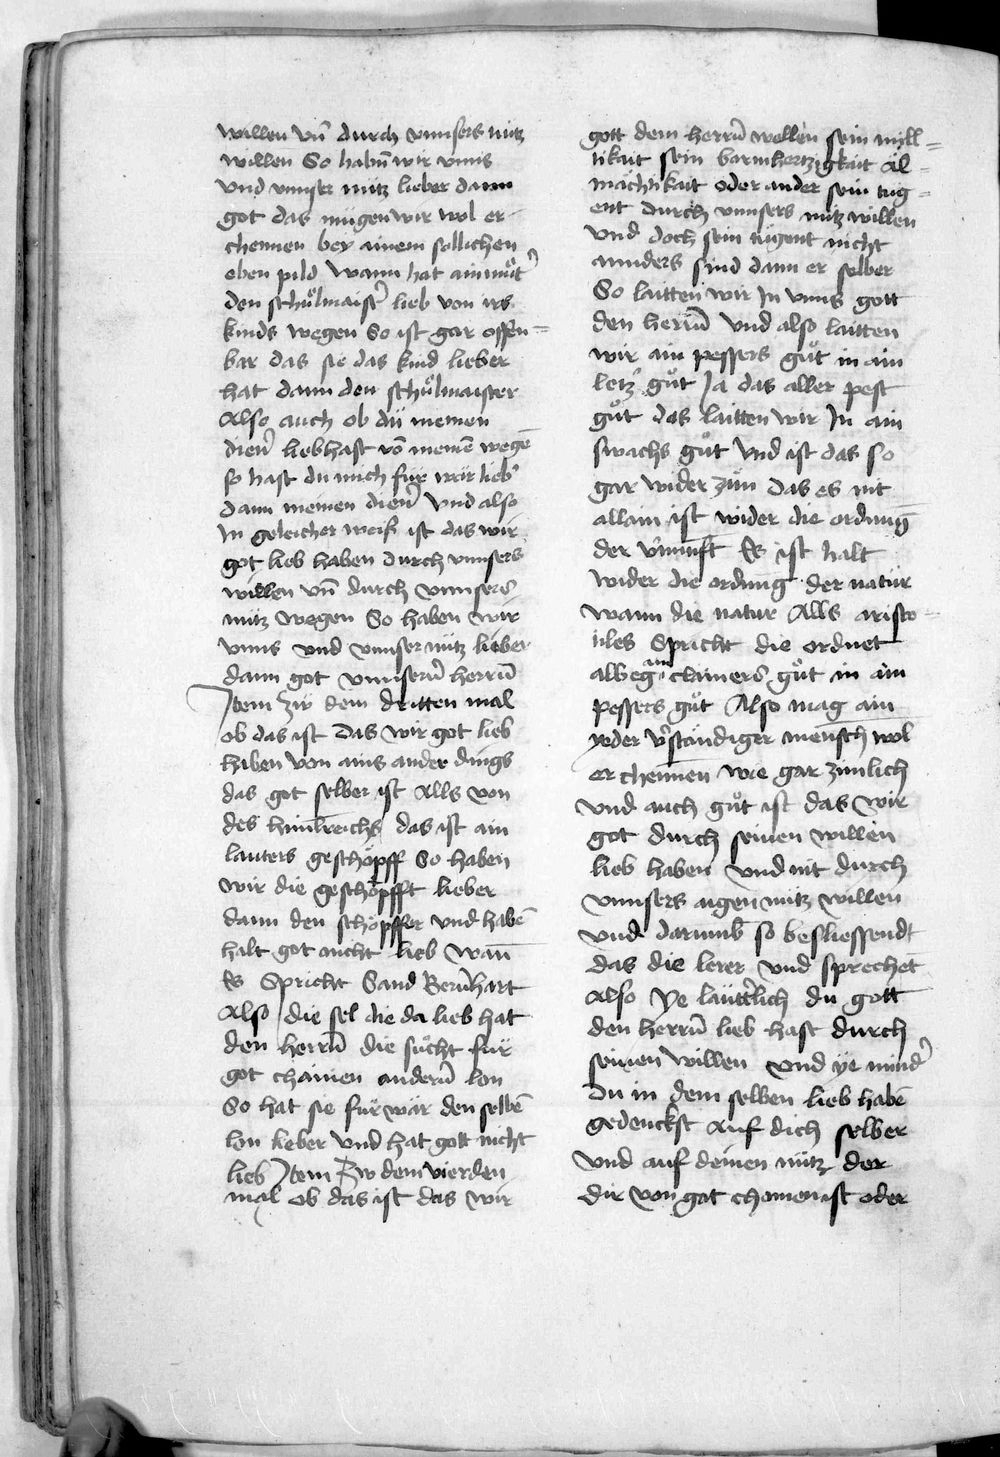 willen vn̄ durch vnnsers nutz
willen So habn̄ wir vnns
vnd vnnser nutz lieber dann
got das mügen wir wol er-
chennen bey ainem sollichen
eben pild wann hat ain můt̾
den schůlmaist̾ lieb von irs
kinds wegen So ist gar offen=
bar das sie das kind lieber
hat dann den schůlmaister
Also auch ob dü meinen
dien̾ lieb hast vō meinē wegē
so hast du mich für war lieb̾
dann meinen dien̾ vnd also
In geleicher weiß ist das wir
got lieb haben durch vnnsers
willen vn̄ durch vnnsers
nutz wegen So haben wir
vnns vnd vnnser nutz lieber
dann got vnnsern̄ herrn̄
Item zw dem dritten mal
ob das ist das wir got lieb
haben von ains ander dings
das got selber ist Alls von
des himlreichs das ist ain
lauters geschöpff So haben
wir die geschöpfft lieber
dann den schöpffer vnd habē
halt got nicht lieb wan̄
Es Spricht Sand Bern̄hart
Also die sel die da lieb hat
den herrn̄ die sůcht für
got chainen andern̄ lon
So hat sie für war den selbē
lon lieber vnd hat gott nicht
lieb Item Zw dem vierden
mal ob das ist das wir
gott dem herrn̄ wellen sein mill=
tikait sein barmhertzigkait Al=
mächtikait oder ander sein tug=
ent durch vnnsers nutz willen
vnd doch sein tugent nicht
annders sind dann er selber
So laitten wir In vnns gott
den herrn̄ vnd also laitten
wir ain pessers gůt in ain
letz̾ gůt Ja das aller pest
gůt das laitten wir In ain
swachs gůt vnd ist das so
gar wider zün das es nit
allain ist wider die ordnung
der v̾nunfft Es ist halt
wider die ordnung der natür
wann die natur Alls aristo=
tiles Spricht die ordnet
albeg ain clainers gůt in ain
pessers gůt Also mag ain
yeder v̾ständiger mensch wol
er chennen wie gar zimlich
vnd auch gůt ist das wir
got durch seinen willen
lieb haben vnd nit durch
vnnsers aigen nutz willen
vnd darumb so besliessendt
das die lerer vnd sprechet
Also ye lautterlich du gott
den herrn̄ lieb hast durch
seinen willen vnd ye mind̾
du in dem selben lieb habē
gedenckst auf dich selber
vnd auf deinen nutz der
dir von got chomen ist oder